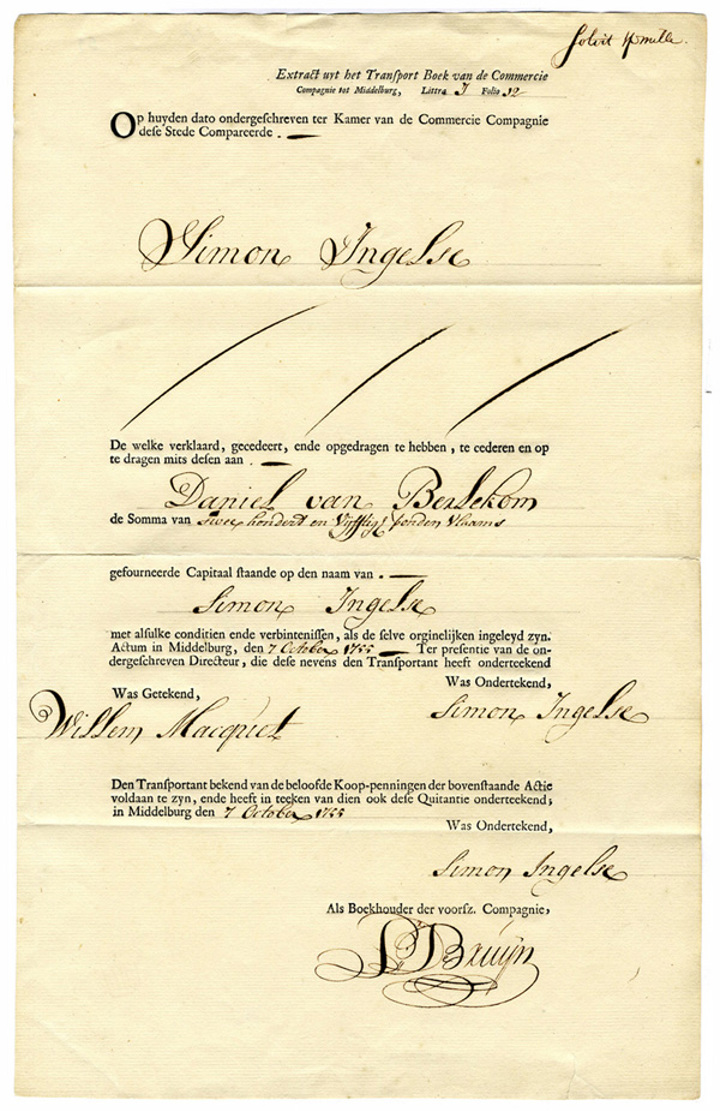 solvit pmille.
Extract uyt het Transport Boek van de Commercie
Compagnie tot Middelburg, Littra J Folio 12
Op huyden dato ondergeschreven ter Kamer van de Commercie Compagnie
dese Stede Compareerde .
Simon Ingelse
De welke verklaard, gecedeert, ende opgedragen te hebben, te cederen en op
te dragen mits desen aan .
Daniel van Berlekom
de Somma van twee hondert en Vyfftigh ponden Vlaams
gefourneerde Capitaal staande op den naam van .
Simon Ingelse
met alsulke conditien ende verbintenissen, als de selve orginelijken ingeleyd zyn.
Actum in Middelburg, den 7 October 1755 Ter presentie van de on-
dergeschreven Directeur, die dese nevens den Transportant heeft onderteekend
Was Ondertekend,
Was Getekend,
Simon Ingelse
Willem Macquet
Den Transportant bekend van de beloofde Koop-penningen der bovenstaande Actie
voldaan te zyn, ende heeft in teeken van dien ook dese Quitantie onderteekend;
in Middelburg den 7 October 1755
Was Ondertekend,
Simon Ingelse
Als Boekhouder der voorsz. Compagnie,
Bruijn